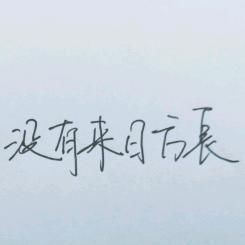 没有来日方長